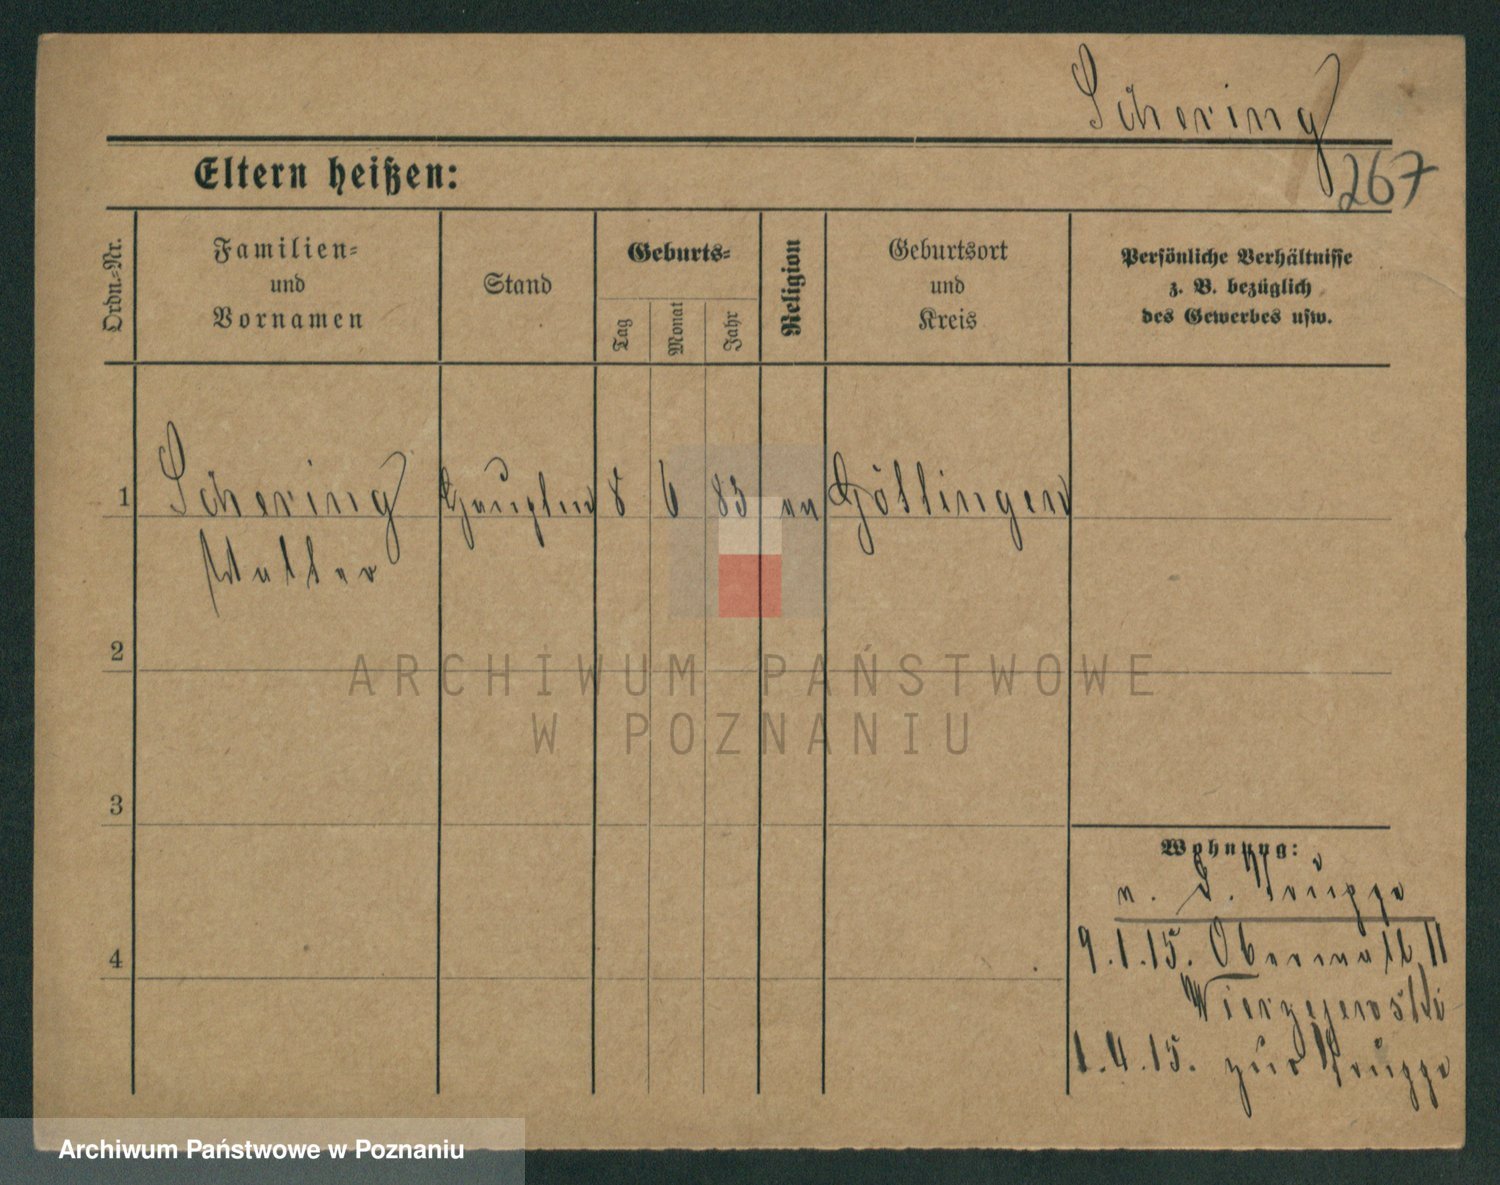 Schering
Eltern heißen:
267
Ordn.-Nr.
Familien-
und
Vornamen
Stand
Geburts-
Tag
Monat
Jahr
Religion
Geburtsort
und
Kreis
Persönliche Verhältnisse
z. B. bezüglich
des Gewerbes usw.
1
Schering
Walter
Hauptm
8
6
83
ev
Göttingen
2
ARCHIWUM PAŃSTWOWE
W POZNANIU
3
Wohnung:
v. d. Truppe
9.1.15. Oberwallstr. 11
1.4.15. zur Truppe
4
Archiwum Państwowe w Poznaniu